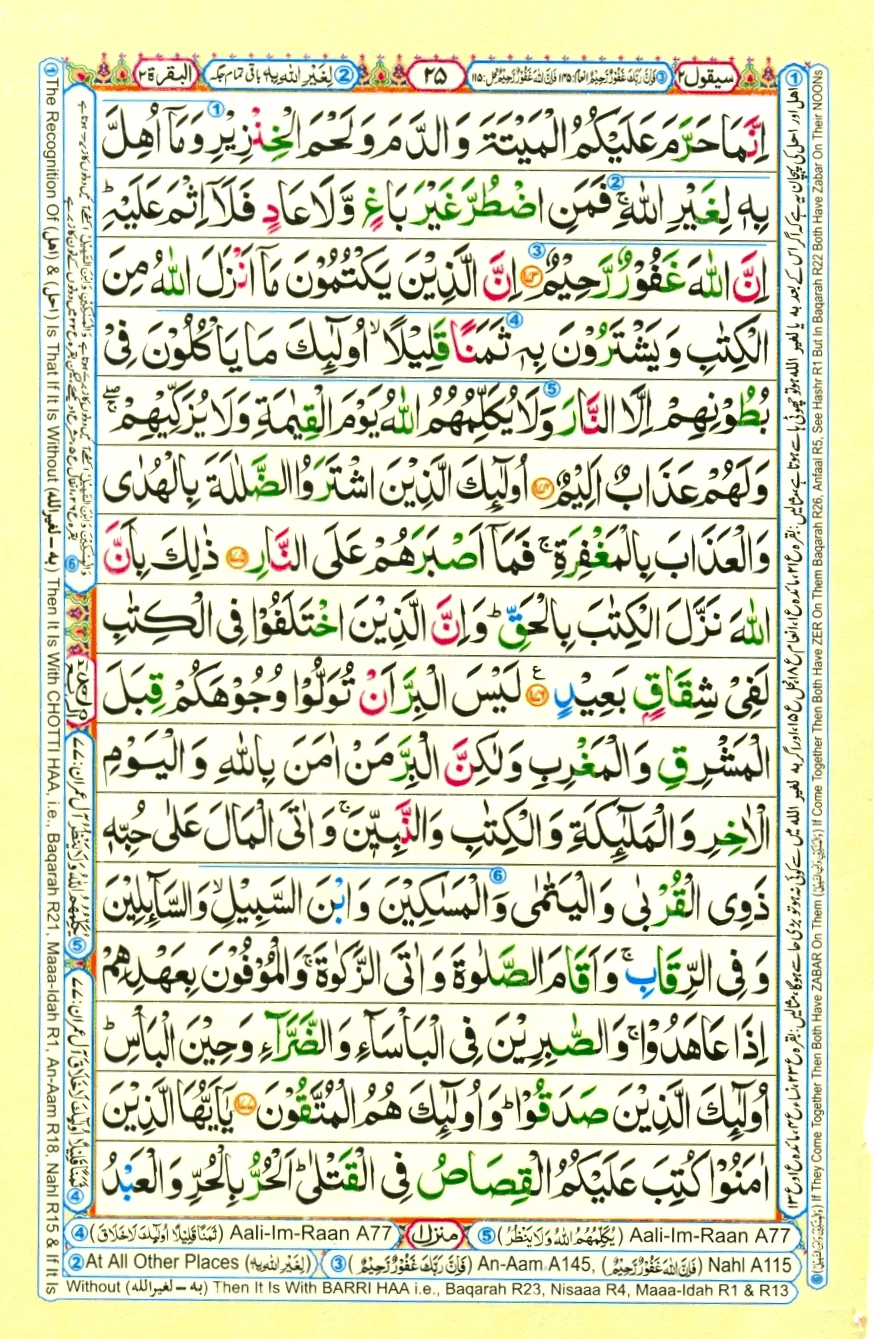 سيقول ٢
③ فَإِنَّ رَبَّكَ غَفُورٌ رَّحِيمٌ انعام: ١٤٥، فَإِنَّ اللهَ غَفُورٌ رَّحِيمٌ نحل: ١١٥
٢٥
② لِغَيْرِ اللهِ بِهٖ باقی تمام جگہ
البقرة ٢
اِنَّمَا حَرَّمَ عَلَيْكُمُ الْمَيْتَةَ وَالدَّمَ وَلَحْمَ الْخِنْزِيْرِ وَمَآ اُهِلَّ ①
بِهٖ لِغَيْرِ اللّٰهِ ۚ ② فَمَنِ اضْطُرَّ غَيْرَ بَاغٍ وَّلَا عَادٍ فَلَآ اِثْمَ عَلَيْهِ ؕ
اِنَّ اللّٰهَ غَفُوْرٌ رَّحِيْمٌ ③ ۝١٧٣ اِنَّ الَّذِيْنَ يَكْتُمُوْنَ مَآ اَنْزَلَ اللّٰهُ مِنَ
الْكِتٰبِ وَيَشْتَرُوْنَ بِهٖ ④ ثَمَنًا قَلِيْلًا ۙ اُولٰٓئِكَ مَا يَاْكُلُوْنَ فِىْ
بُطُوْنِهِمْ اِلَّا النَّارَ ⑤ وَلَا يُكَلِّمُهُمُ اللّٰهُ يَوْمَ الْقِيٰمَةِ وَلَا يُزَكِّيْهِمْ ۖۚ
وَلَهُمْ عَذَابٌ اَلِيْمٌ ۝١٧٤ اُولٰٓئِكَ الَّذِيْنَ اشْتَرَوُا الضَّلٰلَةَ بِالْهُدٰى
وَالْعَذَابَ بِالْمَغْفِرَةِ ۚ فَمَآ اَصْبَرَهُمْ عَلَى النَّارِ ۝١٧٥ ذٰلِكَ بِاَنَّ
اللّٰهَ نَزَّلَ الْكِتٰبَ بِالْحَقِّ ؕ وَاِنَّ الَّذِيْنَ اخْتَلَفُوْا فِى الْكِتٰبِ
لَفِىْ شِقَاقٍۭ بَعِيْدٍ ۝١٧٦ ع لَيْسَ الْبِرَّ اَنْ تُوَلُّوْا وُجُوْهَكُمْ قِبَلَ
الْمَشْرِقِ وَالْمَغْرِبِ وَلٰكِنَّ الْبِرَّ مَنْ اٰمَنَ بِاللّٰهِ وَالْيَوْمِ
الْاٰخِرِ وَالْمَلٰٓئِكَةِ وَالْكِتٰبِ وَالنَّبِيّٖنَ ۚ وَاٰتَى الْمَالَ عَلٰى حُبِّهٖ
ذَوِى الْقُرْبٰى وَالْيَتٰمٰى ⑥ وَالْمَسٰكِيْنَ وَابْنَ السَّبِيْلِ ۙ وَالسَّآئِلِيْنَ
وَفِى الرِّقَابِ ۚ وَاَقَامَ الصَّلٰوةَ وَاٰتَى الزَّكٰوةَ ۚ وَالْمُوْفُوْنَ بِعَهْدِهِمْ
اِذَا عَاهَدُوْا ۚ وَالصّٰبِرِيْنَ فِى الْبَاْسَآءِ وَالضَّرَّآءِ وَحِيْنَ الْبَاْسِ ؕ
اُولٰٓئِكَ الَّذِيْنَ صَدَقُوْا ؕ وَاُولٰٓئِكَ هُمُ الْمُتَّقُوْنَ ۝١٧٧ يٰٓاَيُّهَا الَّذِيْنَ
اٰمَنُوْا كُتِبَ عَلَيْكُمُ الْقِصَاصُ فِى الْقَتْلٰى ؕ اَلْحُرُّ بِالْحُرِّ وَالْعَبْدُ
④ (ثَمَنًا قَلِيْلًا اُولٰٓئِكَ لَا خَلَاقَ) Aali-Im-Raan A77
منزل ١
⑤ (يُكَلِّمُهُمُ اللهُ وَلَا يَنْظُرُ) Aali-Im-Raan A77
② At All Other Places (لِغَيْرِ اللهِ بِهٖ)
③ (فَإِنَّ رَبَّكَ غَفُوْرٌ رَّحِيْمٌ) An-Aam A145, (فَإِنَّ اللهَ غَفُوْرٌ رَّحِيْمٌ) Nahl A115
① The Recognition Of (اهل) & (احل) Is That If It Is Without (به - لغيرالله) Then It Is With CHOTTI HAA, i.e., Baqarah R21, Maaa-Idah R1, An-Aam R18, Nahl R15 & If It Is
Without (به - لغيرالله) Then It Is With BARRI HAA i.e., Baqarah R23, Nisaaa R4, Maaa-Idah R1 & R13
⑥ If They Come Together Then Both Have ZABAR On Them If Come Together Then Both Have ZER On Them Baqarah R26, Anfaal R5, See Hashr R1 But In Baqarah R22 Both Have Zabar On Their NOONs
⑤ يُكَلِّمُهُمُ اللهُ وَلَا يَنْظُرُ آل عمران: ٧٧
④ ثَمَنًا قَلِيْلًا اُولٰٓئِكَ لَا خَلَاقَ آل عمران: ٧٧